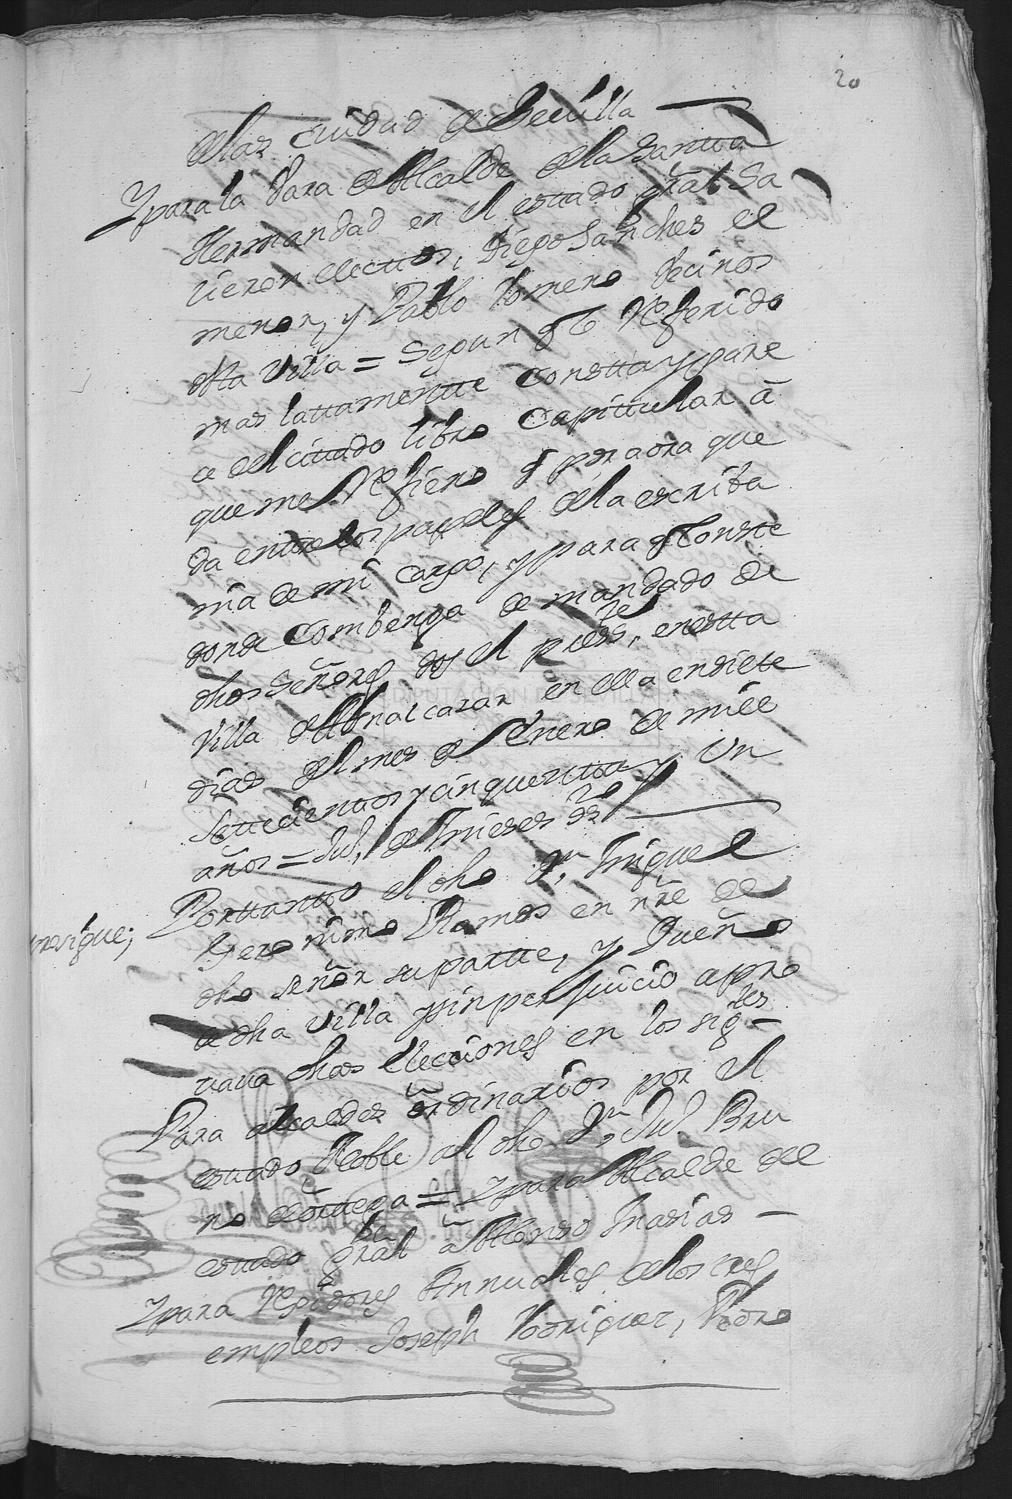 20
de las ciudad de Sevilla
Y para la Vara de Alcalde de la Santta
Hermandad en el estado gral Sa
lieron electtos, Diego Sanches el
menor, y Pablo Romero Vecinos
desta Villa = Segun qto Referido
mas lattamentte constta y pare
ce del cittado libro Capittular â
que me Refiero q por aora que
da entre los papeles de la escriba
nia de mi cargo, y para q Conste
donde Combenga de mandado de
dhos Señores doy el preste, en estta
Villa de Aznalcazar en ella en siete
dias del mes de Enero de mill
Settecientos y cinquentta y Un
años = Juº. de Mieses ssno
Porttantto el dho Dn. Miguel
Geronimo Ramos en nre de
dho señor su partte, y Dueño
de dha Villa y sin perjuicio apro
vava dhas Elecciones en los sigtes
Para alcaldes ordinarios por el
estado Noble al dho Dn. Juº Bru
no de Ortega = Y para Alcalde del
estado gral â Alonso Masias
Y para Regidores Annuales de los tres
empleos Joseph Rodriguez, Pedro